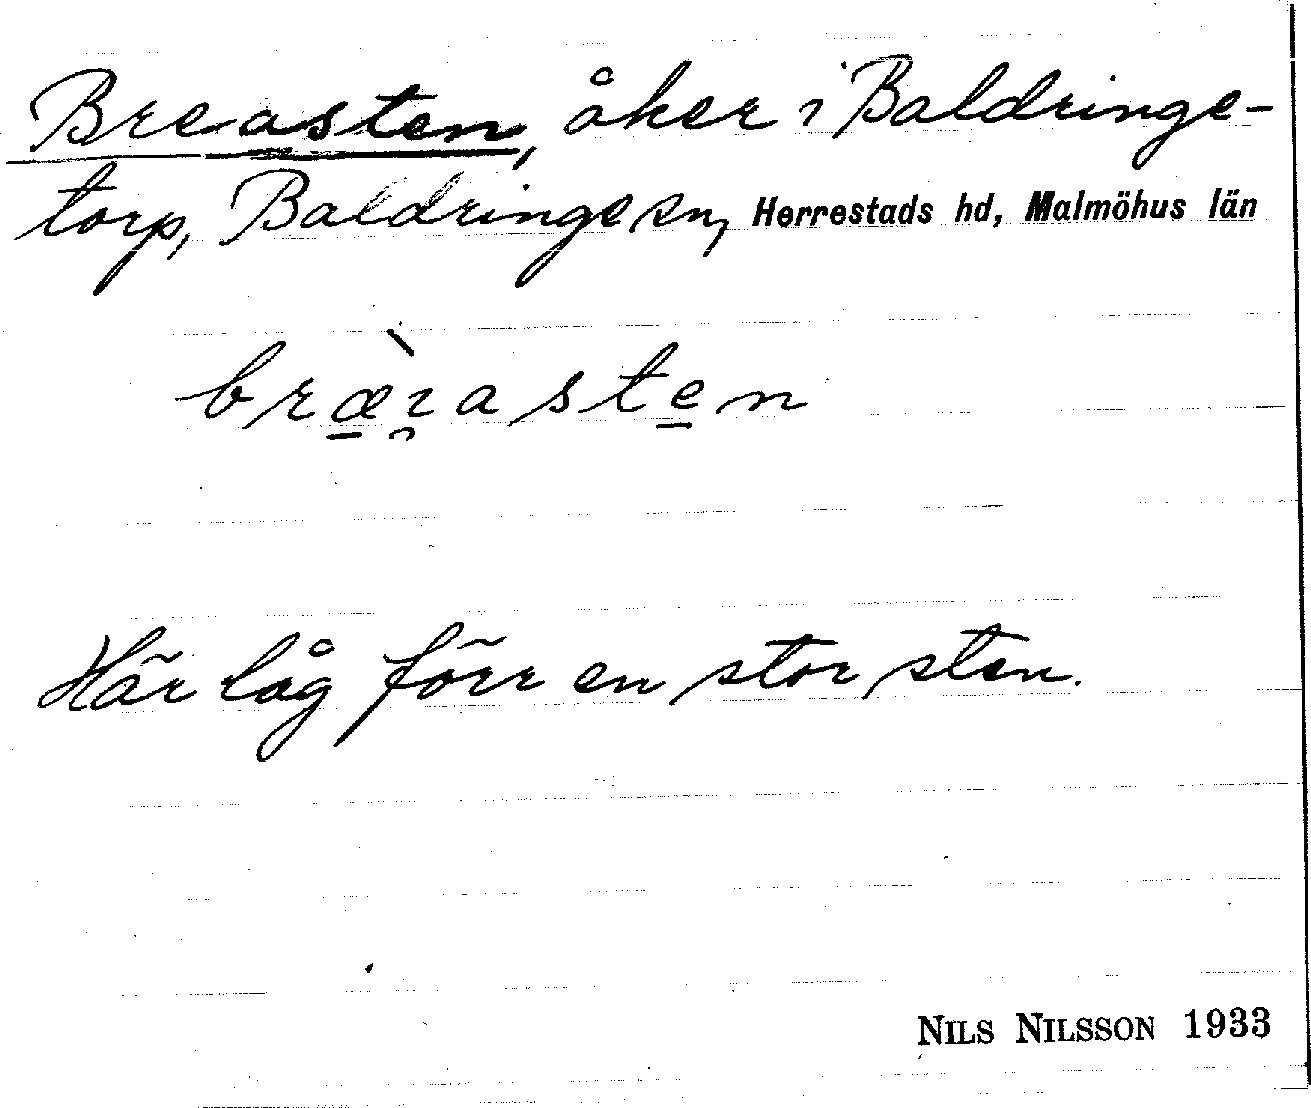 Breasten, åker i Baldringe-
torp, Baldringe sn, Herrestads hd, Malmöhus län
bræ̠̀ɪ̯aste̠n
Här låg förr en stor sten.
NILS NILSSON 1933